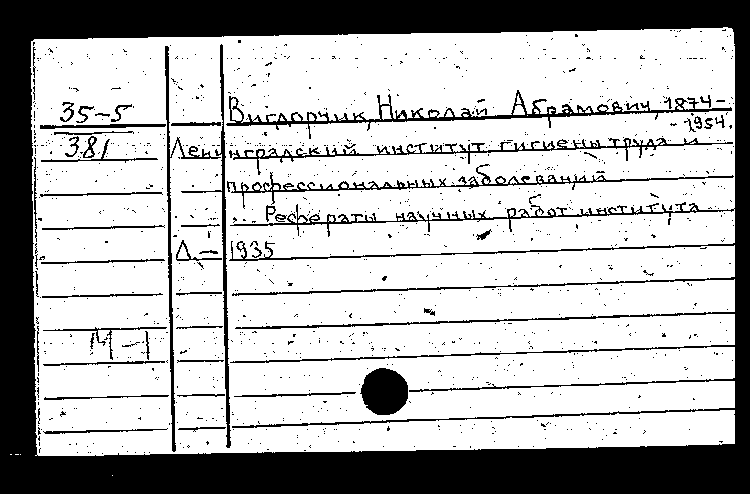 35-5 Вигдорчик, Николай Абрамович, 1874-
-1954.
381 Ленинградский институт гигиены труда и
профессиональных заболеваний
... Рефераты научных работ института
Л. — 1935
М-1